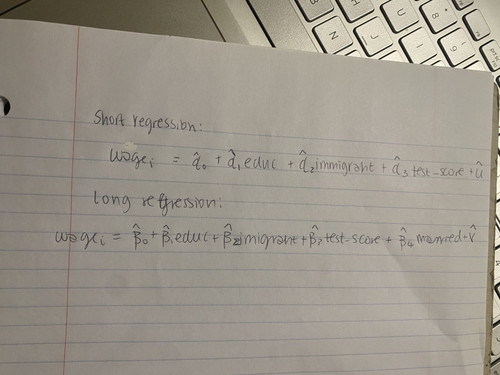 Short regression:
wage_i = α̂_0 + α̂_1 educ + α̂_2 immigrant + α̂_3 test-score + û
Long regression:
wage_i = β̂_0 + β̂_1 educ + β̂_2 imigrant + β̂_3 test-score + β̂_4 married + v̂